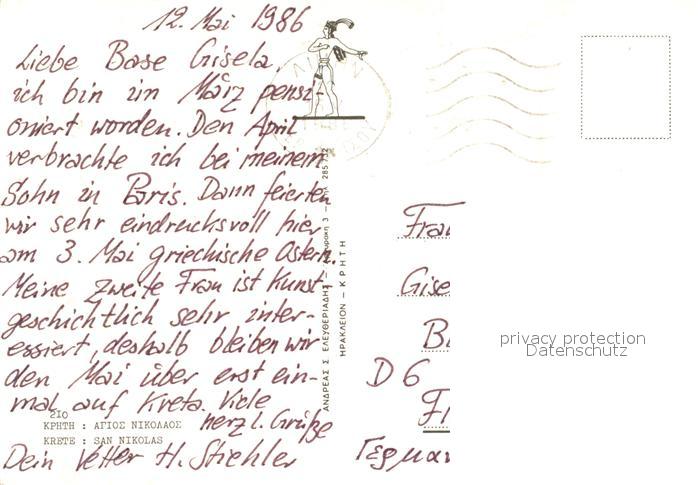 12. Mai 1986
Liebe Base Gisela,
ich bin im März pensi-
oniert worden. Den April
verbrachte ich bei meinem
Sohn in Paris. Dann feierten
wir sehr eindrucksvoll hier
am 3. Mai griechische Ostern.
Meine zweite Frau ist Kunst-
geschichtlich sehr inter-
essiert, deshalb bleiben wir
den Mai über erst ein-
mal auf Kreta. Viele
herzl. Grüße
Dein Vetter H. Stiehler
210
ΚΡΗΤΗ : ΑΓΙΟΣ ΝΙΚΟΛΑΟΣ
KRETE : SAN NIKOLAS
ΑΝΔΡΕΑΣ Σ. ΕΛΕΥΘΕΡΙΑΔΗΣ 3 285 732
ΗΡΑΚΛΕΙΟΝ — ΚΡΗΤΗ
Frau
Gise
D 6
privacy protection
Datenschutz